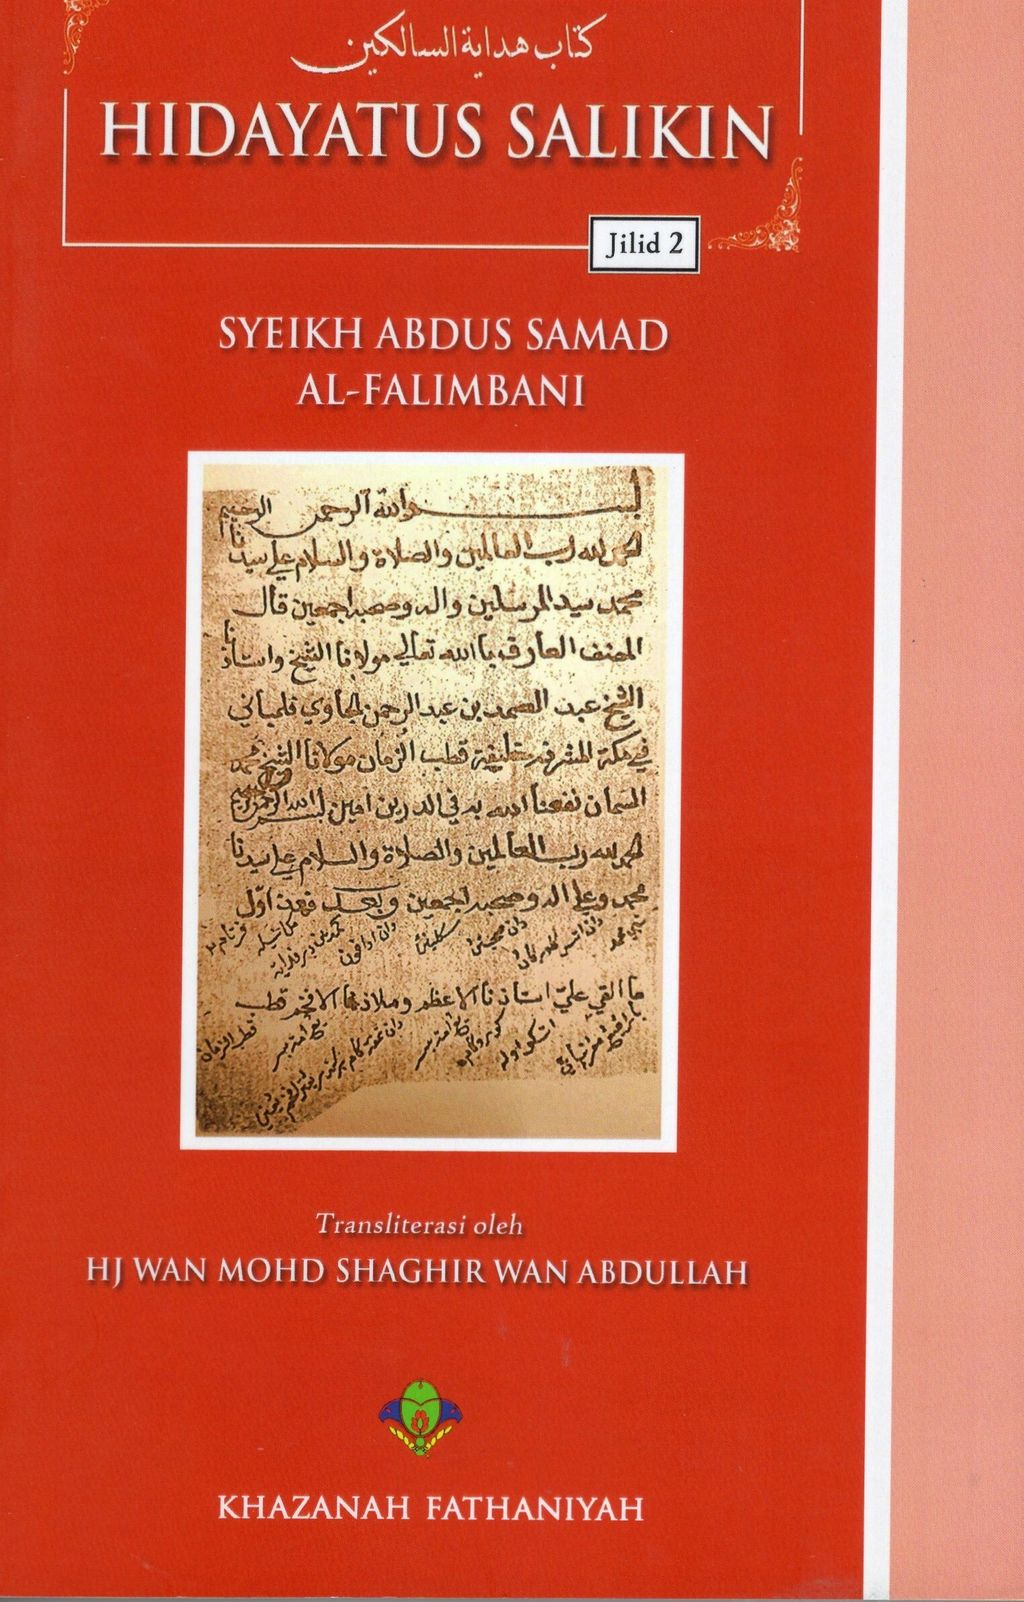 كتاب هداية السالكين
HIDAYATUS SALIKIN
Jilid 2
SYEIKH ABDUS SAMAD
AL-FALIMBANI
بسم الله الرحمن الرحيم
الحمد لله رب العالمين والصلاة والسلام على سيدنا
محمد سيد المرسلين واله وصحبه اجمعين قال
المصنف العارف بالله تعالى مولانا الشيخ واستاذنا
الشيخ عبد الصمد بن عبد الرحمن الجاوي فلمباني
في مكة المشرفة خليفة قطب الزمان مولانا الشيخ محمد
السمان نفعنا الله به في الدارين امين بسم الله الرحمن الرحيم
الحمد لله رب العالمين والصلاة والسلام على سيدنا
محمد وعلى اله وصحبه اجمعين وبعد فهذا اول
ما القي علي استاذنا الاعظم وملاذنا الافخم قطب
قطب الزمان
Transliterasi oleh
HJ WAN MOHD SHAGHIR WAN ABDULLAH
KHAZANAH FATHANIYAH